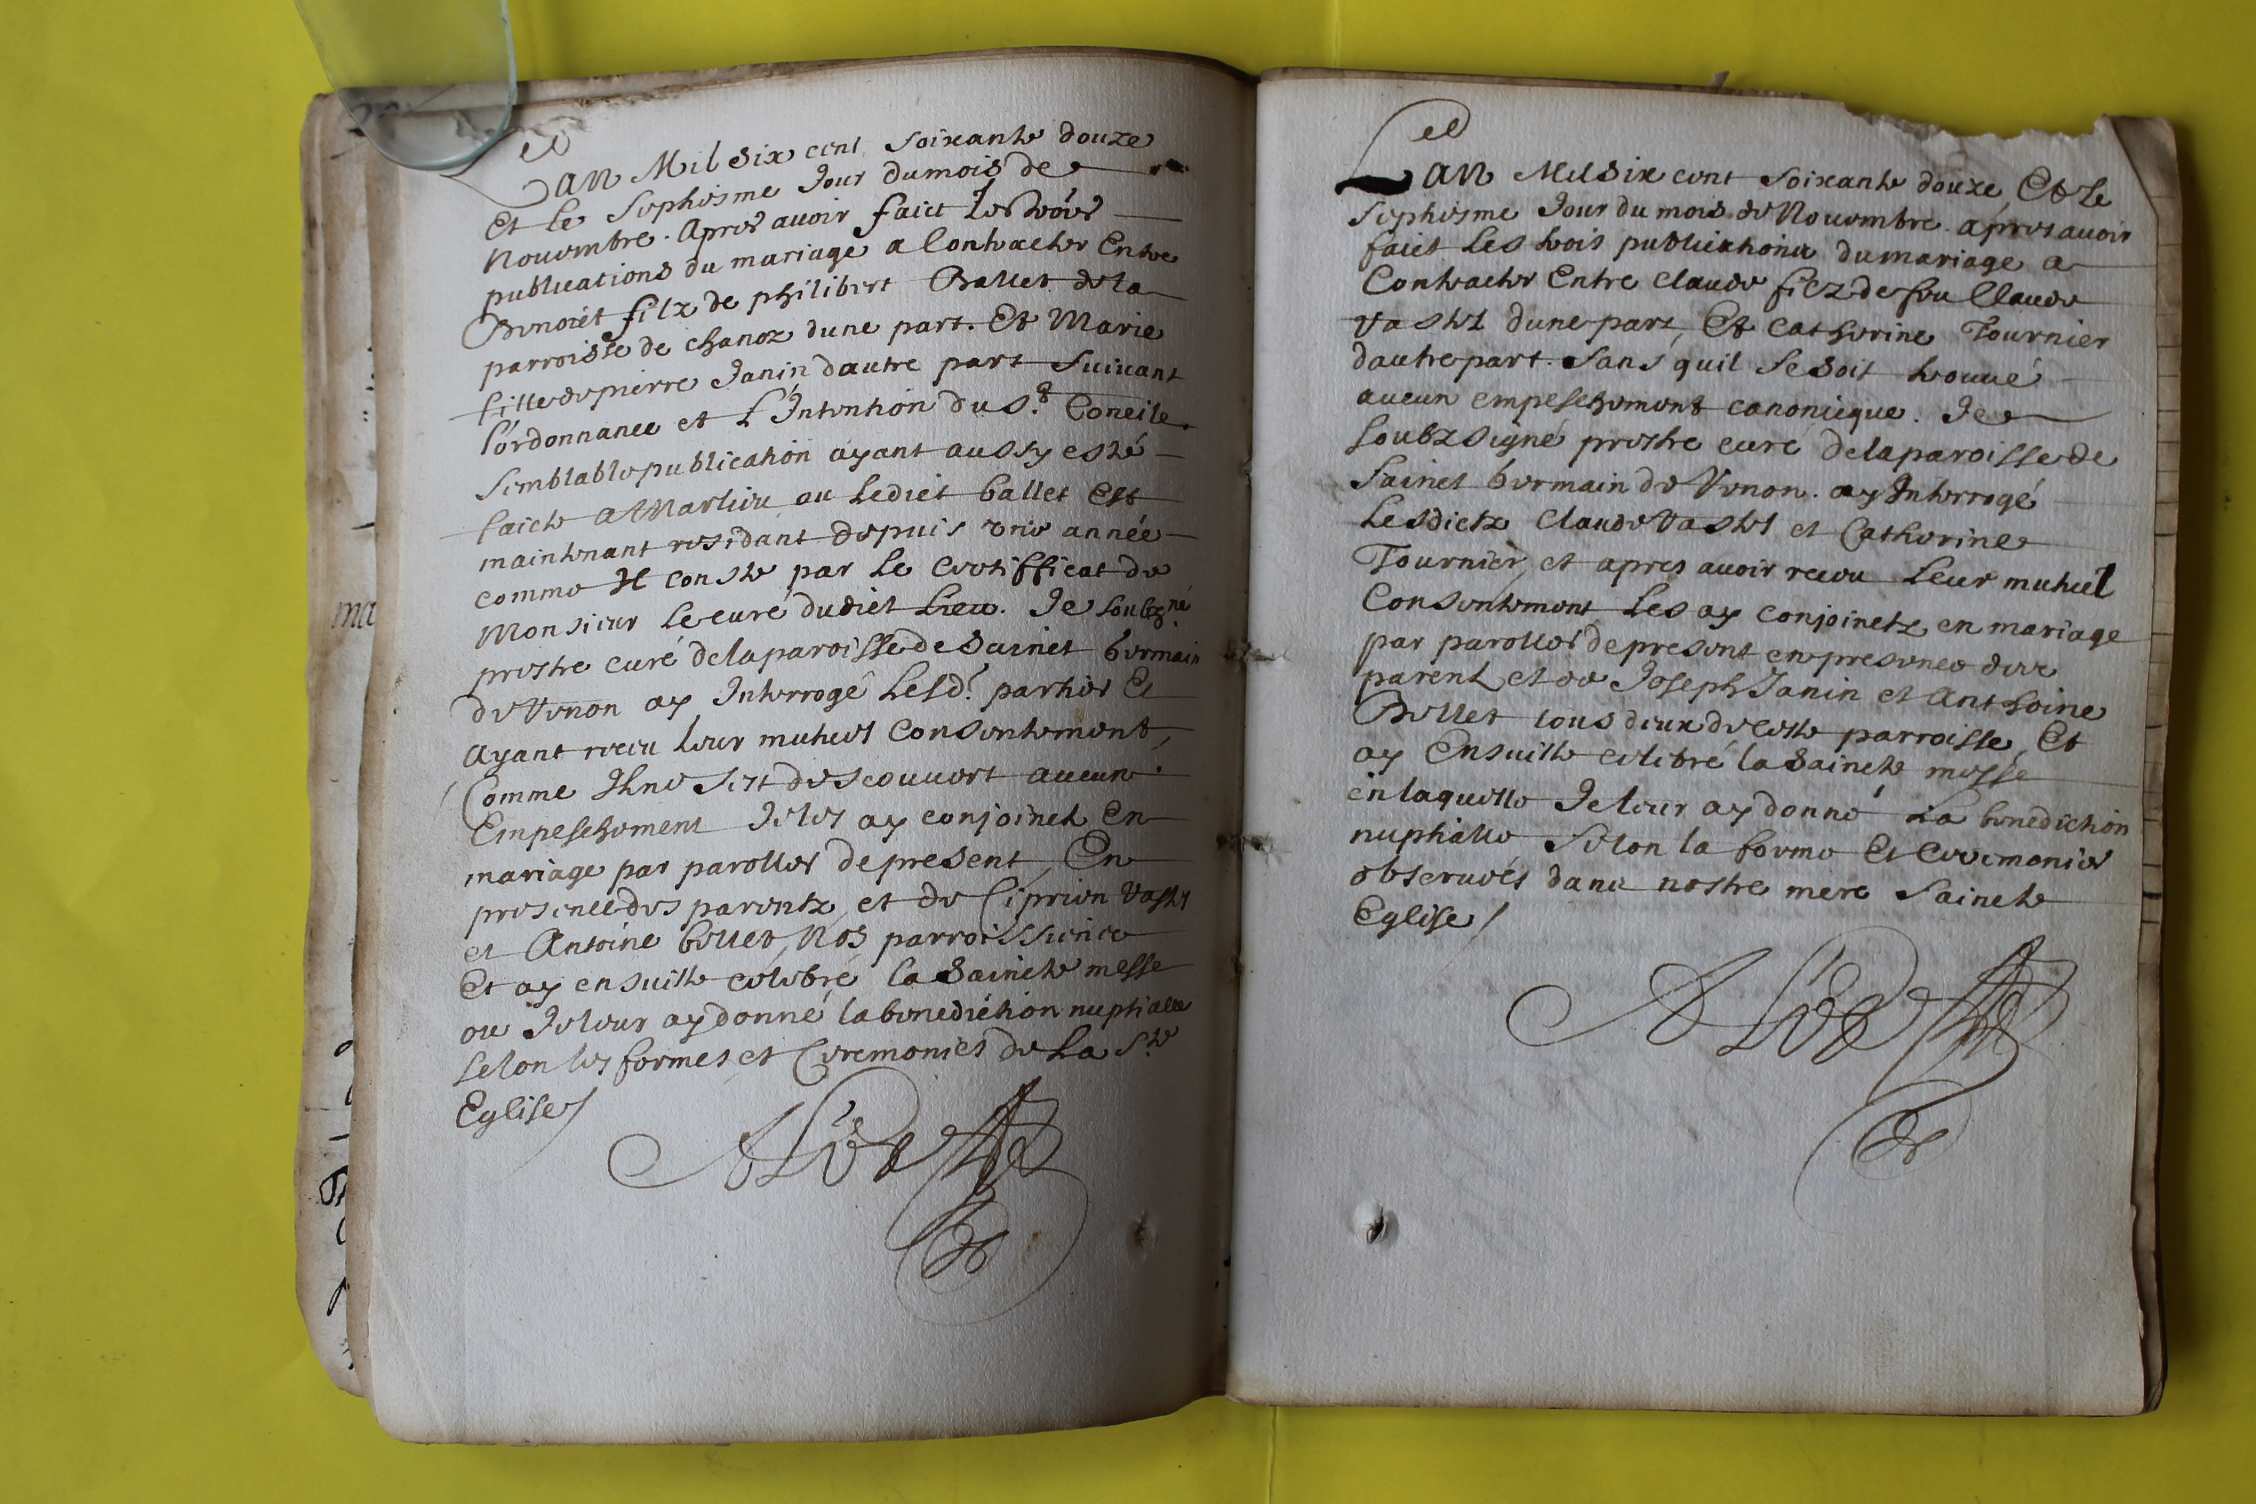 Lan Mil Six cent soixante douze
Et le septiesme Jour du mois de
Novembre. Apres avoir faict les trois
publications du mariage a Contracter Entre
Benoiet filz de philibert Ballet de la
parroisse de chanoz dune part. Et Marie
fille de pierre Janin dautre part suivant
lordonnance et L'Intention du St Concile
semblable publication ayant aussy esté
faicte a Marlieu ou ledict ballet Est
maintenant residant depuis une année
comme Il conste par le certifficat de
Monsieur le curé dudict Lieu. Je soubzné
prestre curé de la paroisse de Sainct Germain
de Renon ay Interrogé lesd. parties Et
ayant receu leur mutuel Consentement,
Comme Il ne sest descouvert aucun
Empeschement Je les ay conjoinct En
mariage par parolles de present, En
presence des parentz et de Ciprien Vaster
et Antoine bellet, Nos parroissiens
Et ay ensuitte celebré la saincte messe
ou Je leur ay donné la benediction nuptialle
selon les formes et Ceremonies de La Ste
Eglise/
Lan Mil Six cent soixante douze, Et le
septiesme Jour du mois de Novembre. apres avoir
faict les trois publications du mariage a
Contracter Entre Claude filz de feu Claude
Vaster dune part, Et Catherine Tournier
dautre part. Sans quil se soit trouvé
aucun empeschement canonicque. Je
soubzsigné prestre curé de la paroisse de
Sainct Germain de Renon. ay Interrogé
Lesdictz Claude Vaster et Catherine
Tournier, et apres avoir receu leur mutuel
Consentement les ay conjoinctz en mariage
par parolles de present en presence des
parent, et de Joseph Janin et Anthoine
Bellet tous deux de cette parroisse, Et
ay Ensuitte celebré la Saincte messe
en laquelle Je leur ay donné La benediction
nuptialle selon la forme Et Ceremonies
observées dans nostre mere Saincte
Eglise/